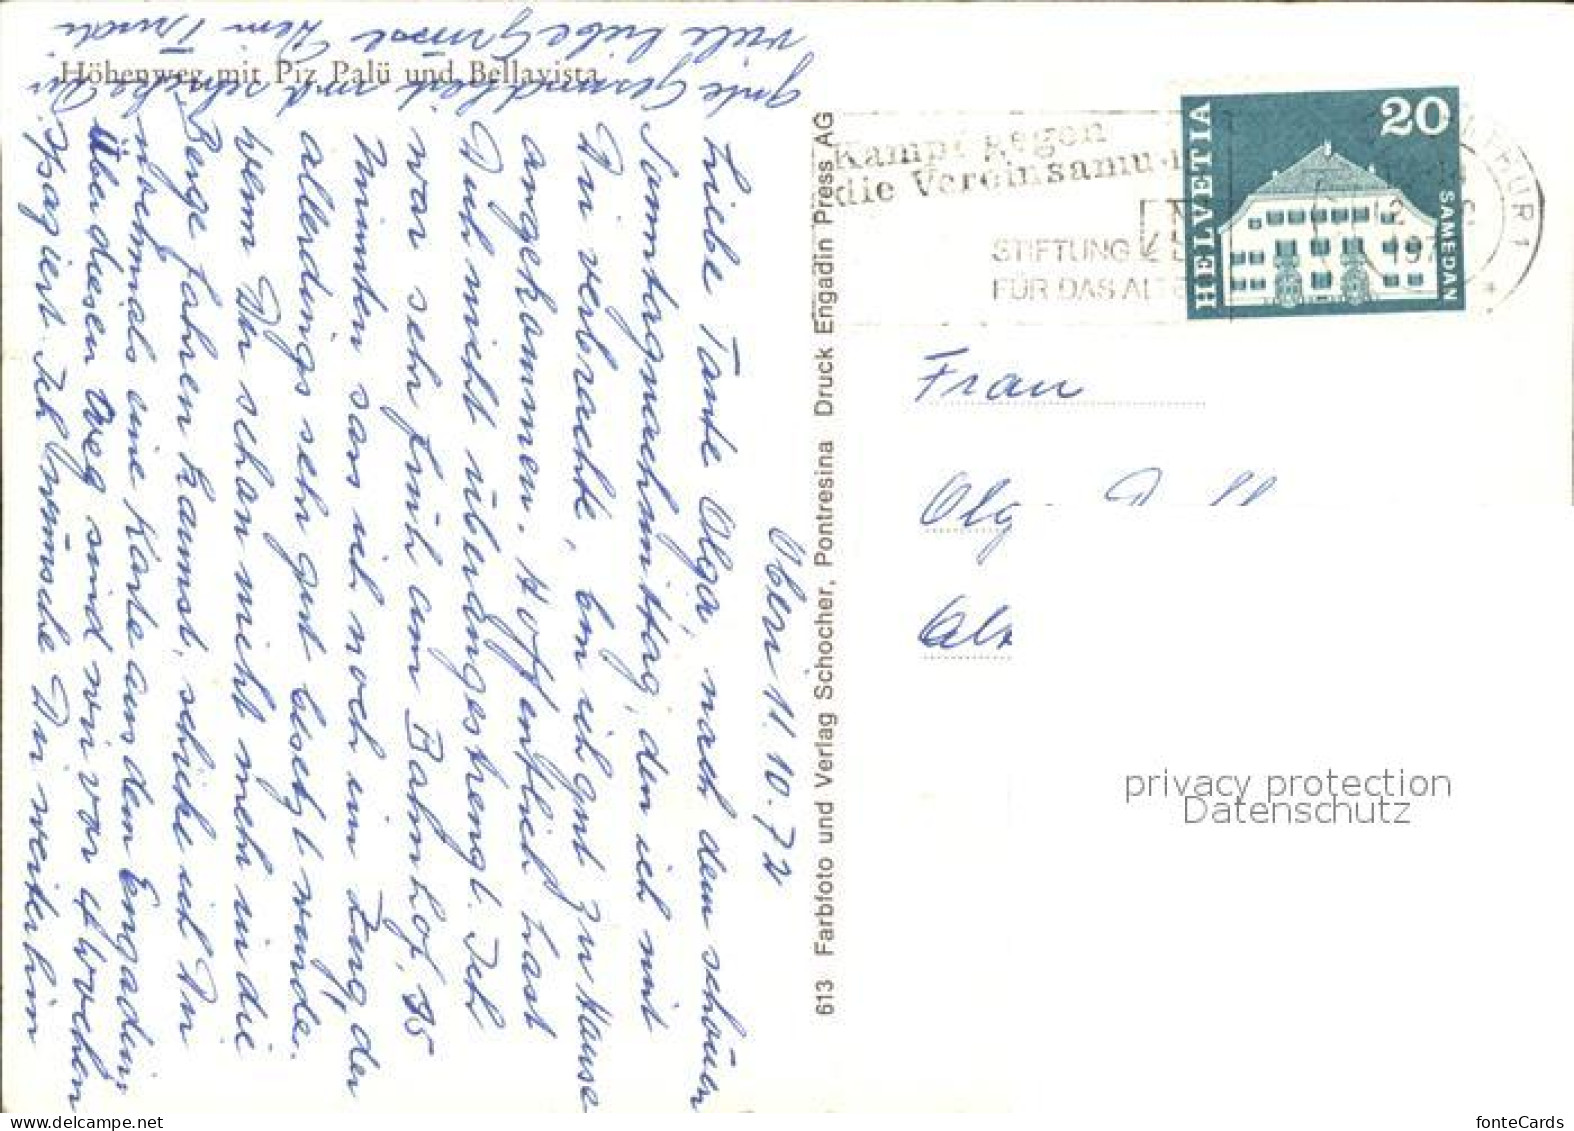 Höhenweg mit Piz Palü und Bellavista
Oberi 11.10.72
Liebe Tante Olga, nach dem schönen
Sonntagnachmittag, den ich mit
Dir verbrachte, bin ich gut zu Hause
angekommen. Hoffentlich hast
Dich nicht überangestrengt. Ich
war sehr früh am Bahnhof, 15
Minuten sass ich noch im Zug, der
allerdings sehr gut besetzt wurde.
Wenn Du schon nicht mehr in die
Berge fahren kannst, schicke ich Dir
nochmals eine Karte aus dem Engadin,
über diesen Weg sind wir vor 4 Wochen
spaziert. Ich wünsche Dir weiterhin
gute Gesundheit und schicke Dir
viele liebe Grüsse Dein Trudi
613 Farbfoto und Verlag Schocher, Pontresina Druck Engadin Press AG
Kampf gegen
die Vereinsamu
STIFTUNG
FÜR DAS ALTE
HELVETIA
20
SAMEDAN
THUR 1
197
Frau
Olg
privacy protection
Datenschutz
fonteCards